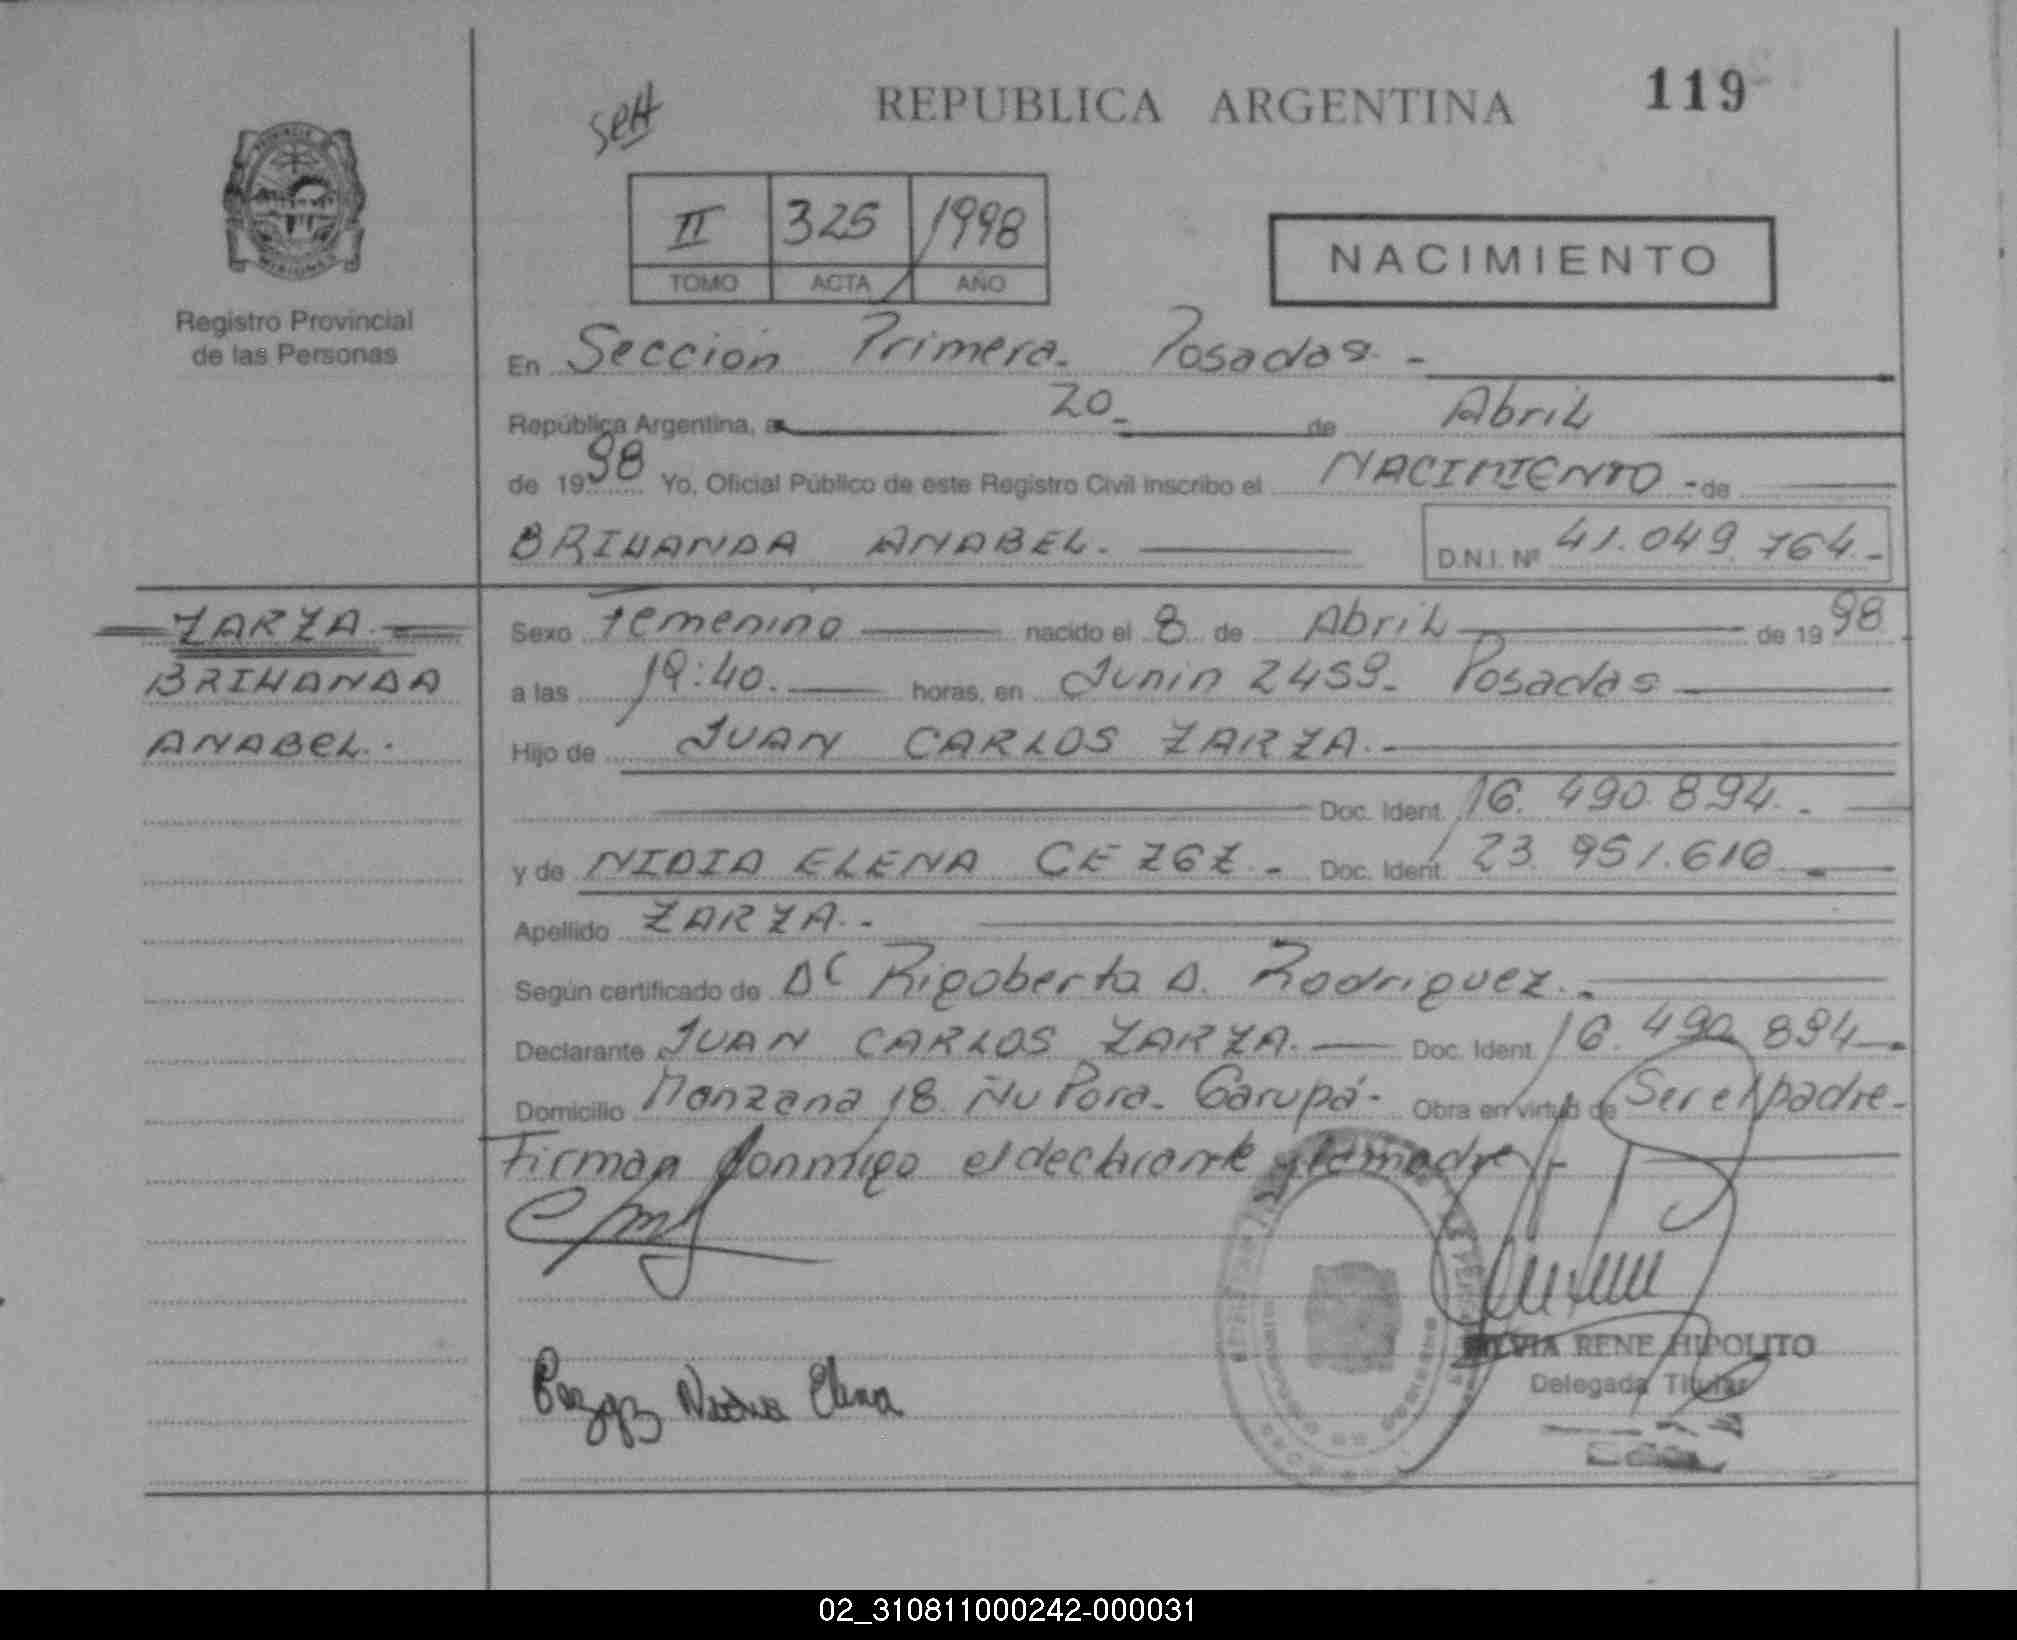 REPUBLICA ARGENTINA 119
II 325 1998
TOMO ACTA AÑO
NACIMIENTO
Registro Provincial
de las Personas
En Sección Primera. Posadas. -
República Argentina, a 20 de Abril
de 1998 Yo, Oficial Público de este Registro Civil inscribo el NACIMIENTO - de
BRIHANDA ANABEL. D.N.I. Nº 41.049.764.-
ZARZA
BRIHANDA
ANABEL.
Sexo Femenino nacido el 8 de Abril de 1998
a las 19:40. horas, en Junin 2459. Posadas
Hijo de JUAN CARLOS ZARZA.
Doc. Ident. 16.490.894.
y de NIDIA ELENA Doc. Ident. 23.951.610
Apellido ZARZA.-
Según certificado de Rigoberto D. Rodriguez.
Declarante JUAN CARLOS ZARZA. Doc. Ident. 16.490.894
Domicilio Manzana 18. Ñu Pora. Garupá. Obra en virtud de Ser el padre.
Firman conmigo el declarante y la madre.-
Elena
SILVIA RENE HIPOLITO
Delegada Titular
02_310811000242-000031